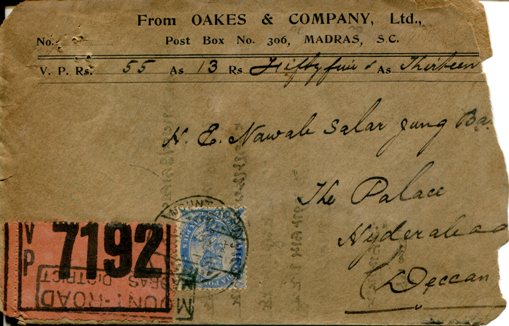 From OAKES & COMPANY, Ltd.,
No.
Post Box No. 306, MADRAS, S.C.
V. P. Rs. 55 As 13 Rs Fifty five & As Thirteen
H. E. Nawab Salar Jung Ba
The Palace
Hyderabad
Deccan
V P 7192
MOUNT-ROAD
MADRAS DISTRICT
MOUNT